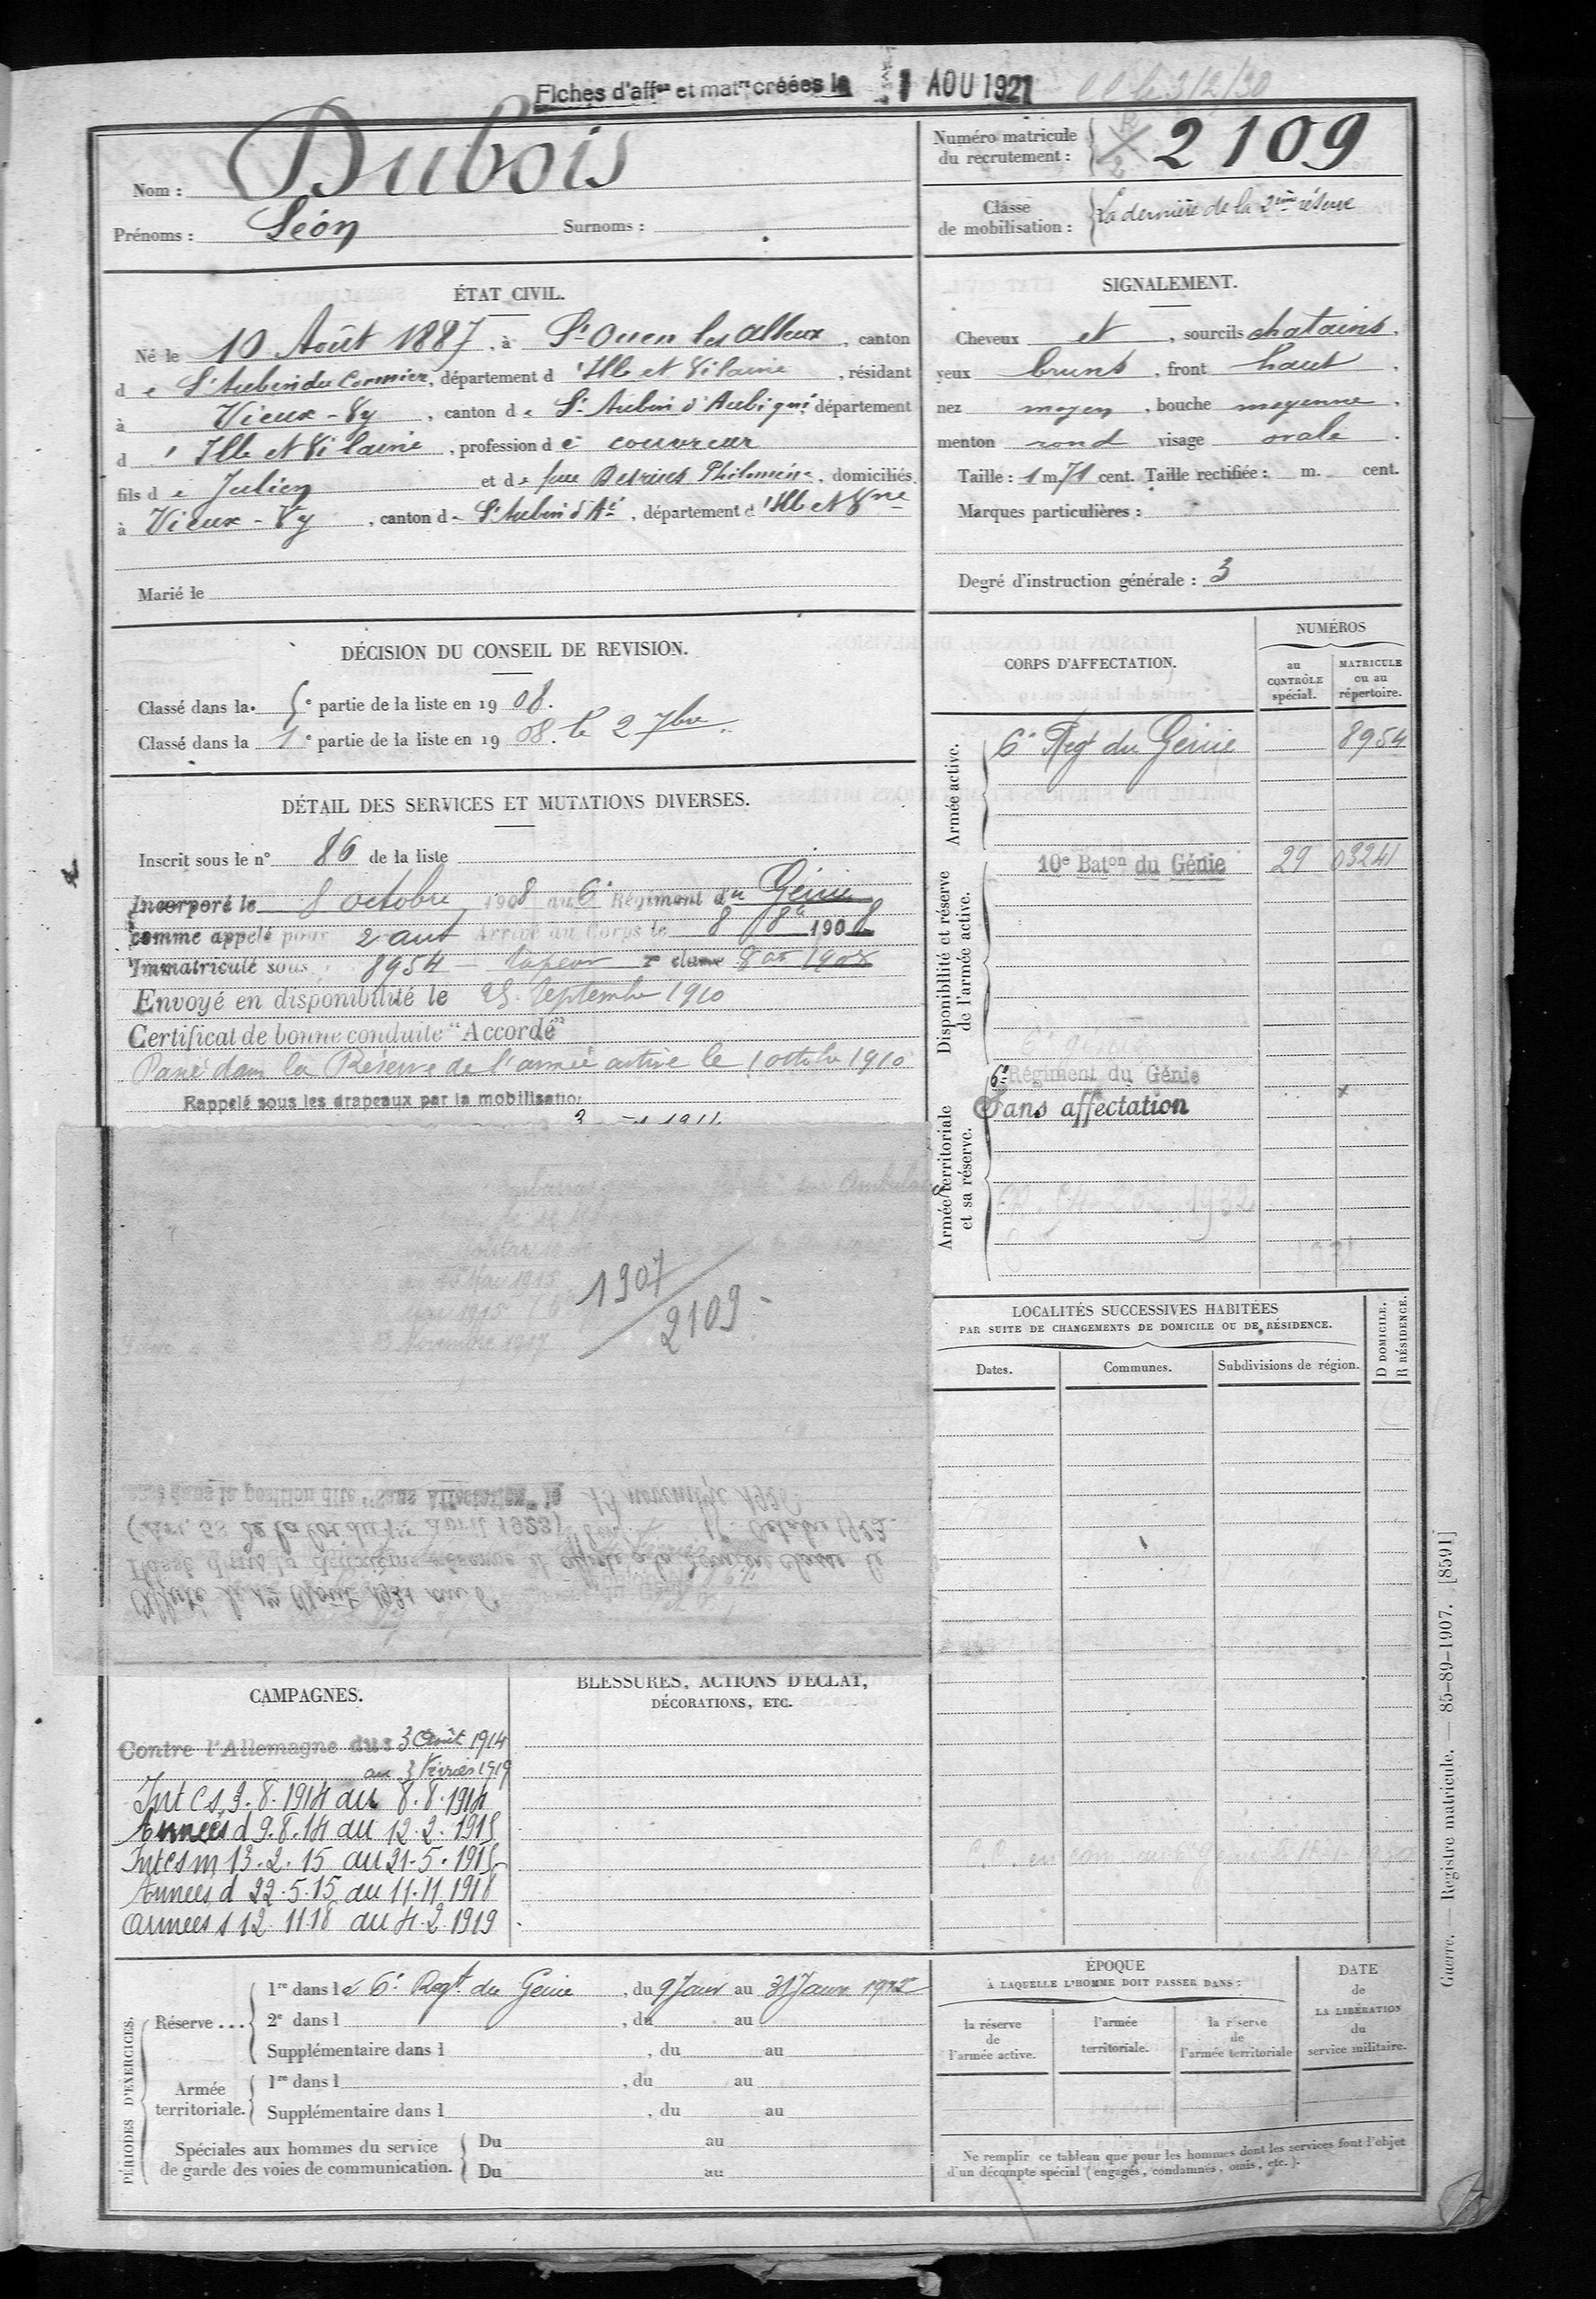 Fiches d'aff^on et mat^re créées le 1 AOU 1921
Nom : Dubois
Prénoms : Léon Surnoms :
Numéro matricule
du recrutement : 2109
Classe
de mobilisation : La dernière de la 2ème réserve
ÉTAT CIVIL.
Né le 10 Août 1887, à St Ouen les Alleux, canton
de St Aubin du Cormier, département d'Ille et Vilaine, résidant
à Vieux-Vy, canton de St Aubin d'Aubigné département
d'Ille et Vilaine, profession de couvreur
fils de Julien et de feue Philomène, domiciliés
à Vieux-Vy, canton de St Aubin d'Aé, département d'Ille et Vne
Marié le
SIGNALEMENT.
Cheveux et, sourcils chatains,
yeux bruns, front haut,
nez moyen, bouche moyenne,
menton rond visage ovale.
Taille : 1 m. 71 cent. Taille rectifiée : m. cent.
Marques particulières :
Degré d'instruction générale : 3
DÉCISION DU CONSEIL DE REVISION.
Classé dans la 5e partie de la liste en 1908.
Classé dans la 1e partie de la liste en 1908. le 2 7bre
DÉTAIL DES SERVICES ET MUTATIONS DIVERSES.
Inscrit sous le n° 86 de la liste
Incorporé le 8 octobre 1908 au 6e Régiment du Génie
comme appelé pour 2 ans Arrivé au Corps le 8 8bre 1908
Immatriculé sous 8954 sapeur 2e classe 8 oct 1908
Envoyé en disponibilité le 25 Septembre 1910
Certificat de bonne conduite "Accordé"
Passé dans la Réserve de l'armée active le 1 octobre 1910
Rappelé sous les drapeaux par la mobilisation
1907
2109
CORPS D'AFFECTATION.
NUMÉROS
au
CONTRÔLE
spécial.
MATRICULE
ou au
répertoire.
Armée active.
6e Regt du Génie 8954
Disponibilité et réserve
de l'armée active.
10e Bat^on du Génie 29 03241
Armée territoriale
et sa réserve.
6e Régiment du Génie
Sans affectation
LOCALITÉS SUCCESSIVES HABITÉES
PAR SUITE DE CHANGEMENTS DE DOMICILE OU DE RÉSIDENCE.
Dates.
Communes.
Subdivisions de région.
D DOMICILE.
R RÉSIDENCE.
CAMPAGNES.
Contre l'Allemagne du : 3 Août 1914
au 3 Février 1919
Int C s 3.8.1914 au 8.8.1914
Armées d 9.8.14 au 12.2.1915
Int C s m 13.2.15 au 21.5.1915
Armées d 22.5.15 au 11.11.1918
Armées s 12.11.18 au 4.2.1919
BLESSURES, ACTIONS D'ÉCLAT,
DÉCORATIONS, ETC.
PÉRIODES D'EXERCICES.
Réserve ...
1re dans le 6e Regt du Génie, du 9 Janv au 31 Janv. 1912
2e dans l , du au
Supplémentaire dans l , du au
Armée
territoriale.
1re dans l , du au
Supplémentaire dans l , du au
Spéciales aux hommes du service
de garde des voies de communication.
Du au
Du au
ÉPOQUE
À LAQUELLE L'HOMME DOIT PASSER DANS :
la réserve
de
l'armée active.
l'armée
territoriale.
la réserve
de
l'armée territoriale
DATE
de
LA LIBÉRATION
du
service militaire.
Ne remplir ce tableau que pour les hommes dont les services font l'objet
d'un décompte spécial (engagés, condamnés, omis, etc.).
Guerre. — Registre matricule. — 85-89-1907. [8591]